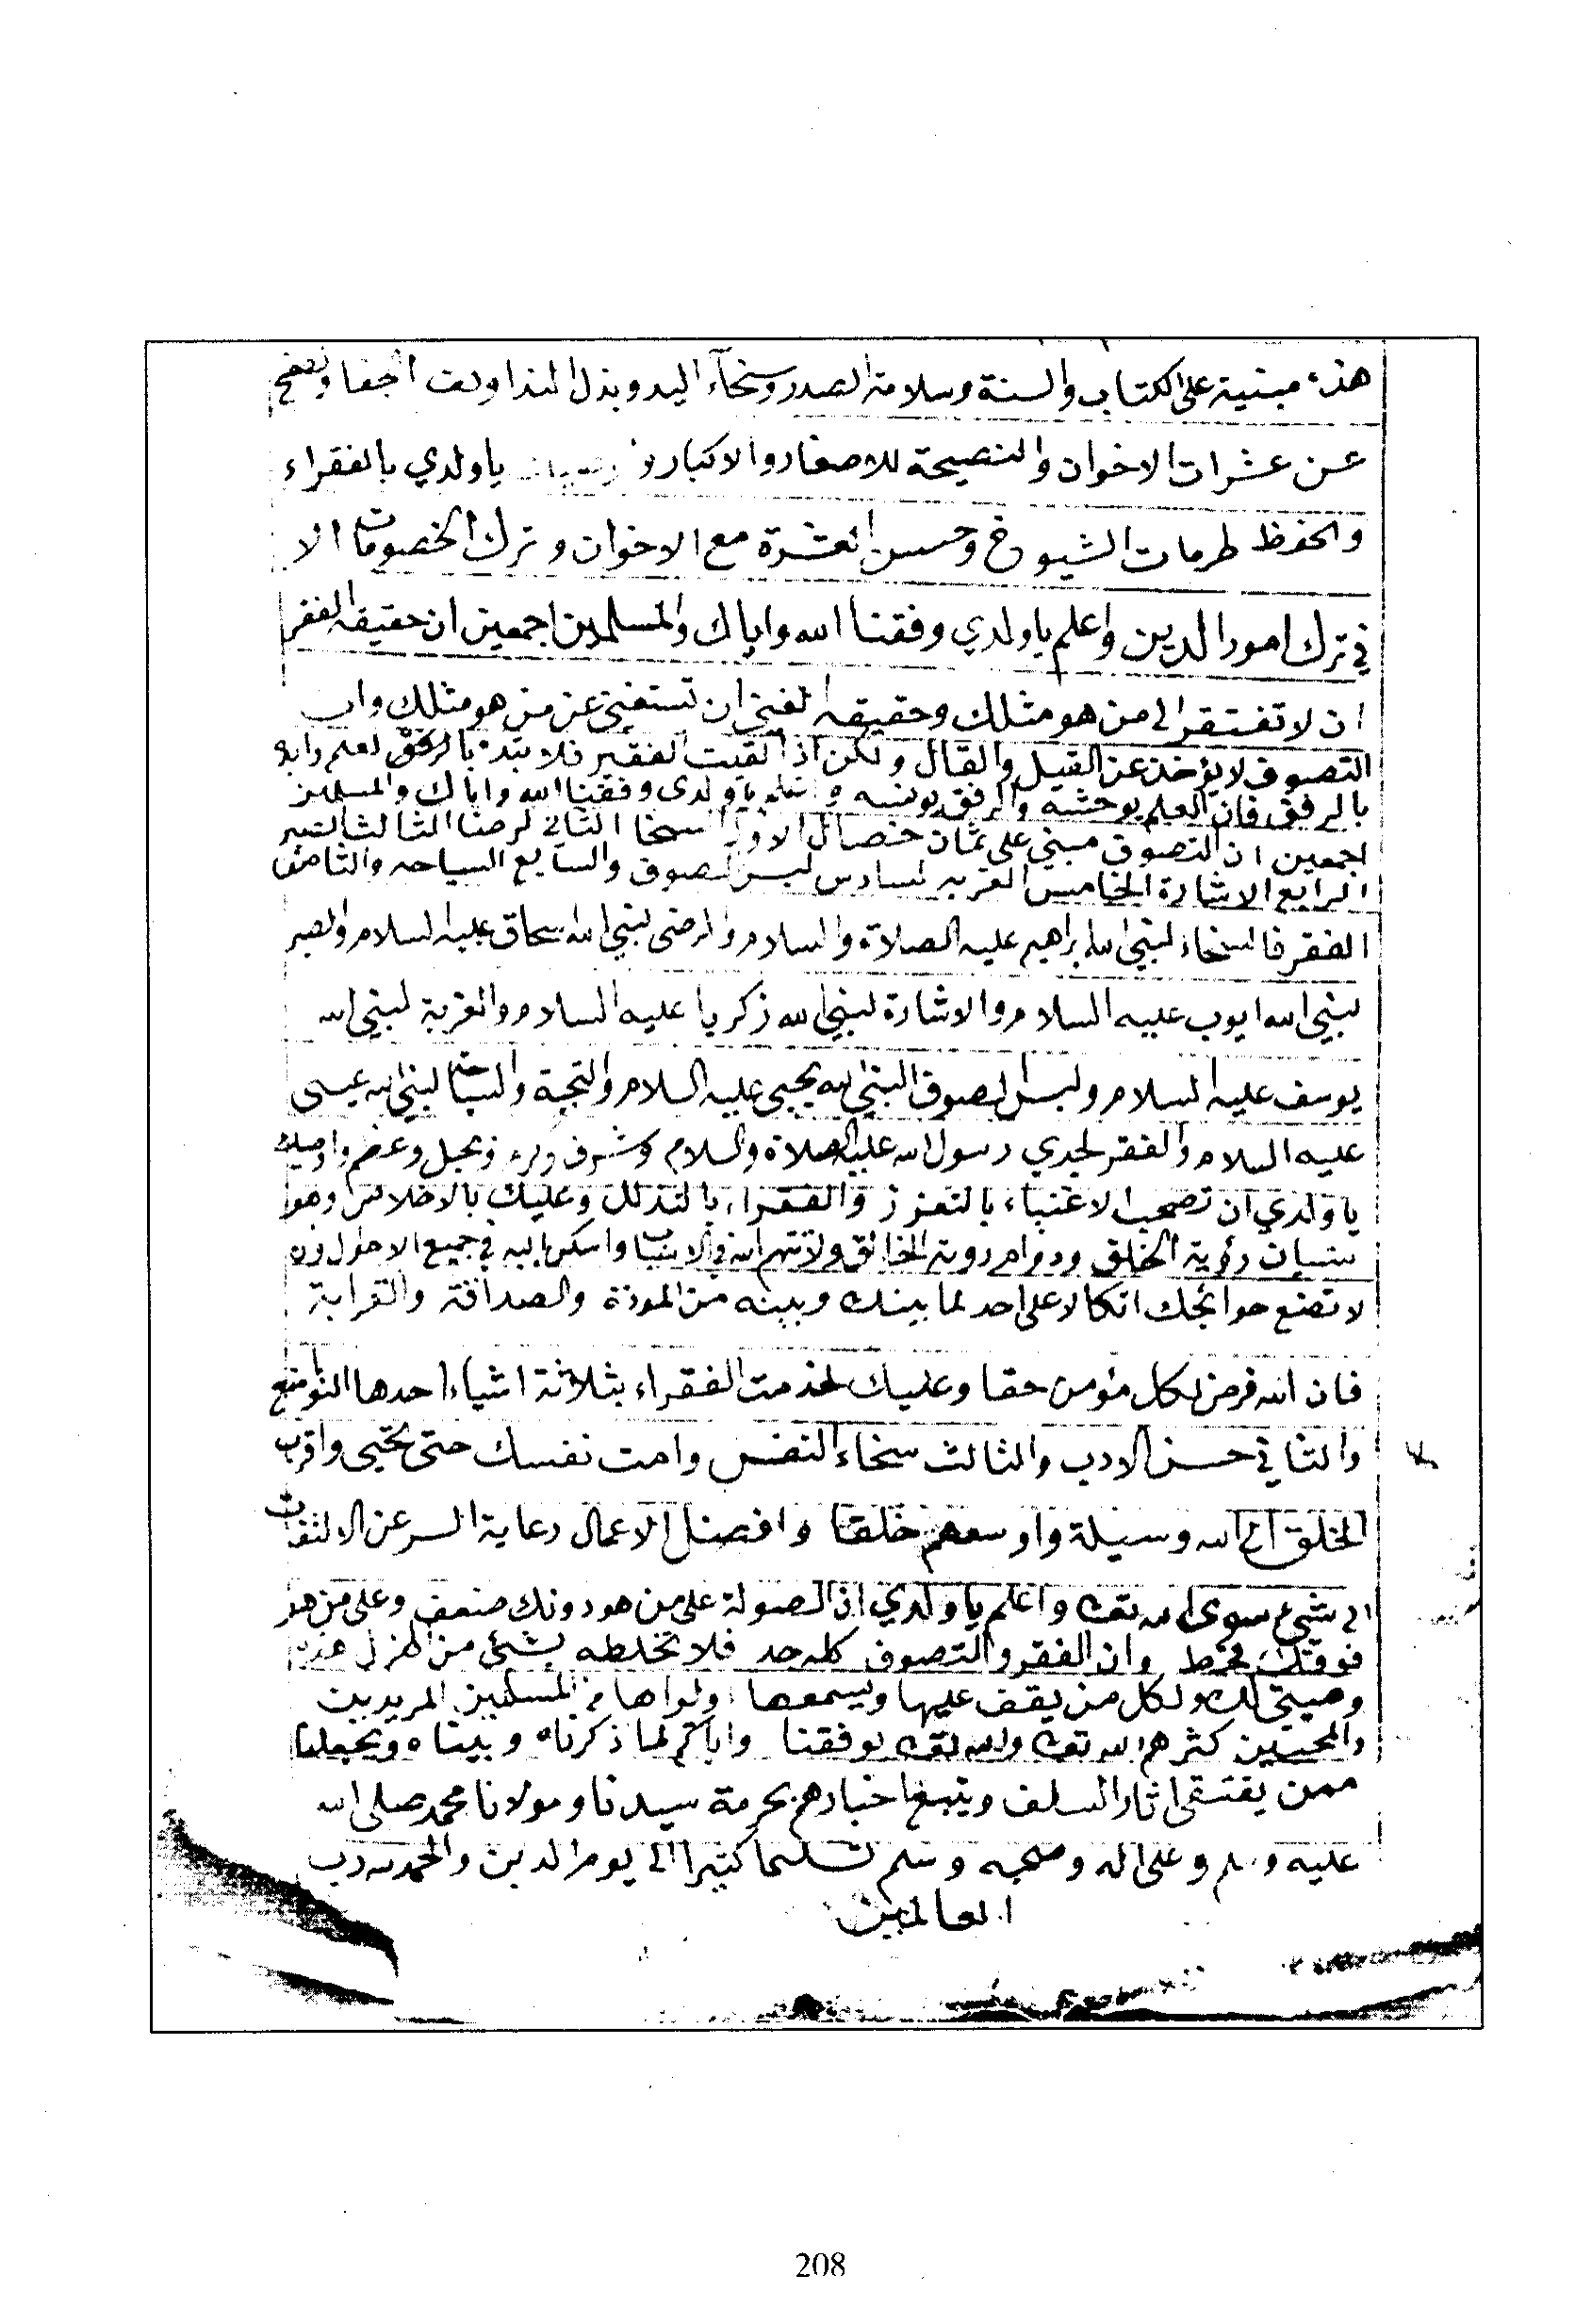 هذه مبنية على الكتاب والسنة وسلامة الصدر وسخآء اليد وبذل الندا وكف الجفا والصفح
عن عشرات الاخوان والنصيحة للاصغار والاكبار ياولدي بالفقراء
والحفظ لحرمات الشيوخ وحسن العشرة مع الاخوان وترك الخصومات الا
في ترك امور الدين واعلم ياولدي وفقنا الله واياك والمسلمين اجمعين ان حقيقة الفقر
ان لا تفتقر الى من هو مثلك وحقيقة الغنى ان تستغني عن من هو مثلك وان
التصوف لا يؤخذ عن القيل والقال ولكن اذا لقيت الفقير فلا تبده بالعلم وابده
بالرفق فان العلم يوحشه والرفق يونسه واعلم ياولدي وفقنا الله واياك والمسلمين
اجمعين ان التصوف مبني على ثمان خصال الاول السخا الثاني الرضا الثالث الصبر
الرابع الاشارة الخامس الغربه السادس لبس الصوف والسابع السياحه والثامن
الفقر فالسخاء لنبي الله ابراهيم عليه الصلاة والسلام والرضى لنبي الله اسحاق عليه السلام والصبر
لنبي الله ايوب عليه السلام والاشارة لنبي الله زكريا عليه السلام والغربة لنبي الله
يوسف عليه السلام ولبس الصوف لنبي الله يحيى عليه السلام والتحية والسياحة لنبي الله عيسى
عليه السلام والفقر لجدي رسول الله عليه الصلاة والسلام وشرف وكرم وبجل وعظم واوصيك
ياولدي ان تصحب الاغنياء بالتعزز والفقراء بالتذلل وعليك بالاخلاص وهو
نسيان رؤية الخلق ودوام روية الخالق ولا تتهم الله في الاسباب واسكن اليه في جميع الاحوال وان
لا تضع حوائجك اتكالا على احد لما بينك وبينه من المودة والصداقة والقرابة
فان الله فرض لكل مؤمن حقا وعليك لخدمت الفقراء بثلاثة اشياء احدها التواضع
والثاني حسن الادب والثالث سخاء النفس وامت نفسك حتى تحيى واقرب
الخلق الى الله وسيلة واوسعهم خلقا وافضل الاعمال رعاية السر عن الالتفات
الى شيء سوى الله تعالى واعلم ياولدي ان الصولة على من هو دونك ضعف وعلى من هو
فوقك فخر وان الفقر والتصوف كله جد فلا تخلطه بشئ من الهزل هذه
وصيتي لك ولكل من يقف عليها ويسمعها من المسلمين المريدين
والمحبين كثرهم الله تعالى والله تعالى يوفقنا واياكم لما ذكرناه وبيناه ويجعلنا
ممن يقتفي اثار السلف ويتبع اخبارهم بحرمة سيدنا ومولانا محمد صلى الله
عليه وسلم وعلى اله وصحبه وسلم تسليما كثيرا الى يوم الدين والحمد لله رب
العالمين
208